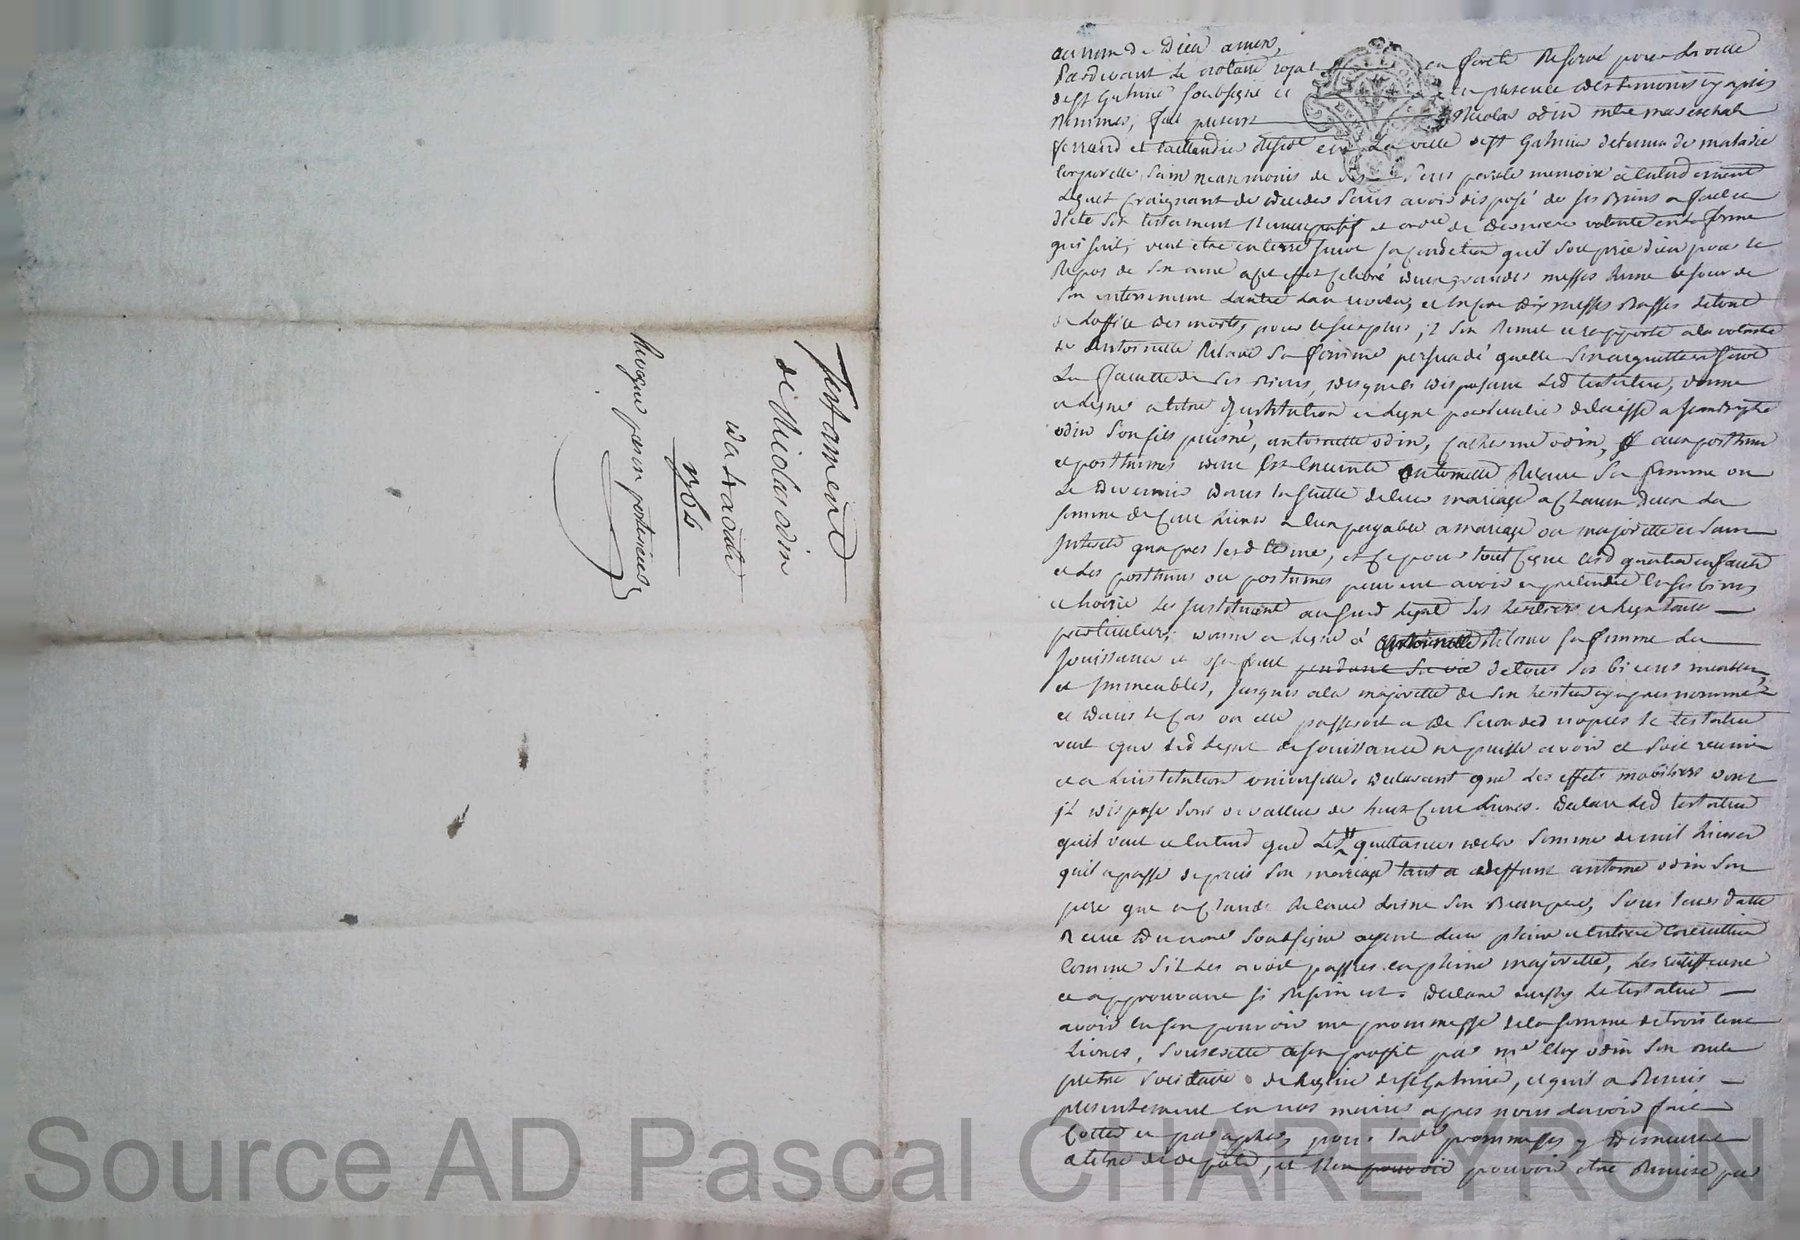 Testament
de Nicolas odin
1764
au nom de Dieu amen,
Pardevant Le notaire royal en forêt Reservé pour la ville
de St Galmier soubsigné et en presence des temoins cy après
nommés, fut present Nicolas odin mtre mareschal
ferrand et taillandier en La ville de St Galmier detenu de maladie
corporelle, sain neanmoins de ses sens parole memoire et entendement
Lequel craignant de deceder sans avoir disposé de ses Biens a fait et
dicté son testament nuncupatif et ordre de derniere volonté en la forme
qui suit, veut etre enterré suivant sa condition qu'il soit prié dieu pour le
Repos de son ame a cet effet celebré deux grandes messes L'une le jour de
son enterrement L'autre et encore dix messes Basses Le tout
de Loffice des morts, pour le surplus, il s'en Remet et rapporte a la volonté
de antoinette Relave sa femme persuadé quelle s'en acquittera suivant
La faculté de ses Biens, desquels disposant Led testateur, donne
et Legue a titre d'institution et Legat particulier delaisse a
odin son fils puisné, antoinette odin, Catherine odin, aux posthume
et posthumes dont est Enceinte antoinette Relave sa femme ou
Le devenir dans la suitte de leur mariage a Chacun deux La
somme de Cent Livres a l'un payable a mariage ou majorité et sans
interest qu'apres led terme, et ce pour tout ce que lesd quatre enfants
et Les posthume ou postumes peuvent avoir et pretendre en ses biens
et hoirie Les Instituant aud Legat ses heritiers et Legataires
particuliers; donne et Legue à antoinette Relave sa femme La
Jouissance et usufruit pendant sa vie de tous ses biens meubles
et Immeubles, jusques a la majorité de son heritier cy apres nommé
et dans le Cas ou elle passeroit a de secondes nopces le testateur
veut que led Legat de jouissance ne puisse avoir et soit reunie
a L'institution universelle. declarant que Les effets mobiliers dont
il dispose sont de valleur de huit Cent Livres. declare Led testateur
quil veut et entend que Les quittances de la somme de mil Livres
quil a passé depuis son mariage tant a deffunt antoine odin son
pere que a Claude Relave son Beaupere, sous leurs datte
Receu du notre soubsigné ayent leur pleine et entiere Execution
comme s'il Les avoit passées en pleine majorité, Les ratiffiant
et approuvant si Besoin est. declare aussy Le testateur
avoir en son pouvoir une prommesse de la somme de trois Cent
Livres, souscritte a son proffit par mre Eloy odin son oncle
pretre societaire de L'eglise de St Galmier, et qu'il a Remis
presentement en nos mains apres nous L'avoir fait
Cotter et parapher, pour Lad prommesse y demeurer
a titre de depôt, et n'en pouvoir pouvoir etre Remise par
Source AD Pascal CHAREYRON